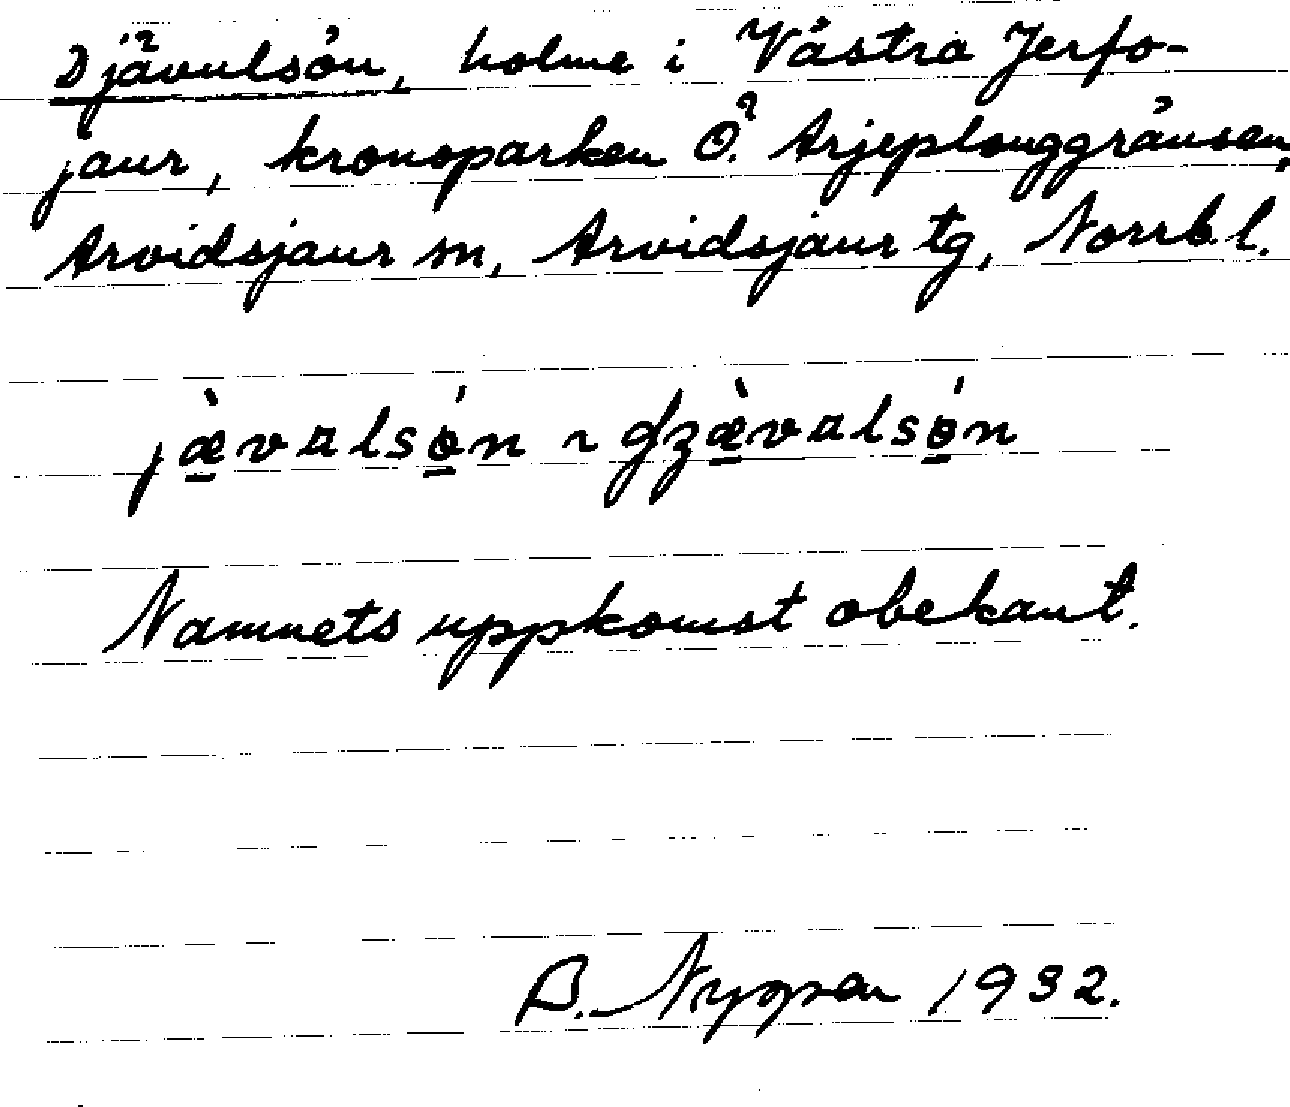 Djävulsön, holme i Västra Jerfo-
jaur, kronoparken Ö. Arjeplouggränsen,
Arvidsjaur sn, Arvidsjaur tg, Norrb. l.
jæ̀valsǿn ~ dʒæ̀valsǿn
Namnets uppkomst obekant.
B. Nyman 1932.